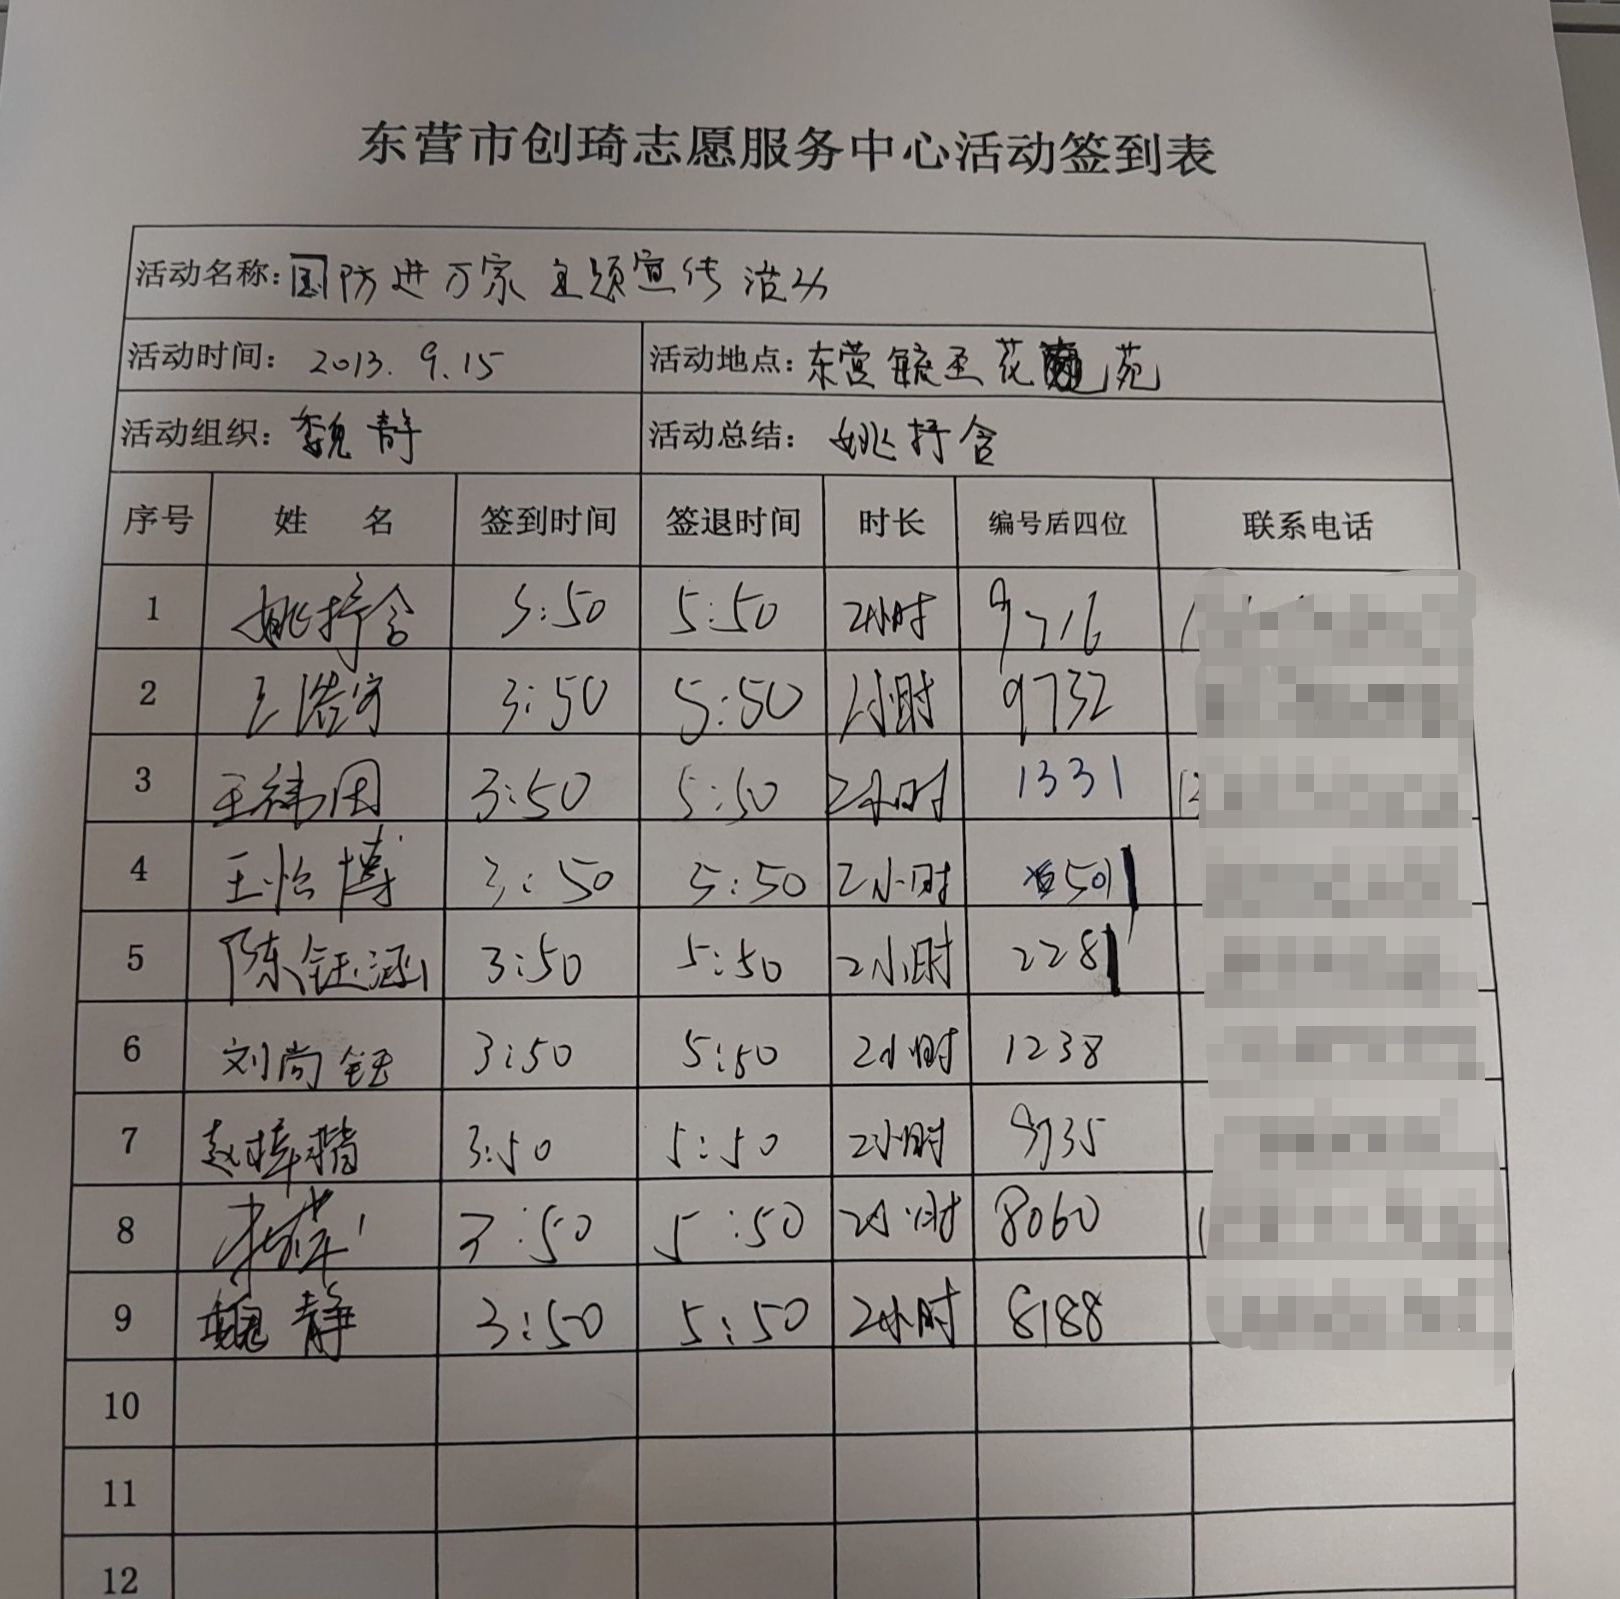 东营市创琦志愿服务中心活动签到表
活动名称:国防进万家主题宣传活动
活动时间: 2013.9.15 活动地点:东营 花 苑
活动组织: 魏静 活动总结: 姚抒含
序号 姓 名 签到时间 签退时间 时长 编号后四位 联系电话
1 姚抒含 3:50 5:50 2小时 9716
2 王浩宇 3:50 5:50 2小时 9732
3 王 3:50 5:50 2小时 1331
4 王怡博 3:50 5:50 2小时 501
5 陈钰涵 3:50 5:50 2小时 2281
6 刘尚钰 3:50 5:50 2小时 1238
7 赵 3:50 5:50 2小时 9935
8 3:50 5:50 2小时 8060
9 魏静 3:50 5:50 2小时 8188
10
11
12